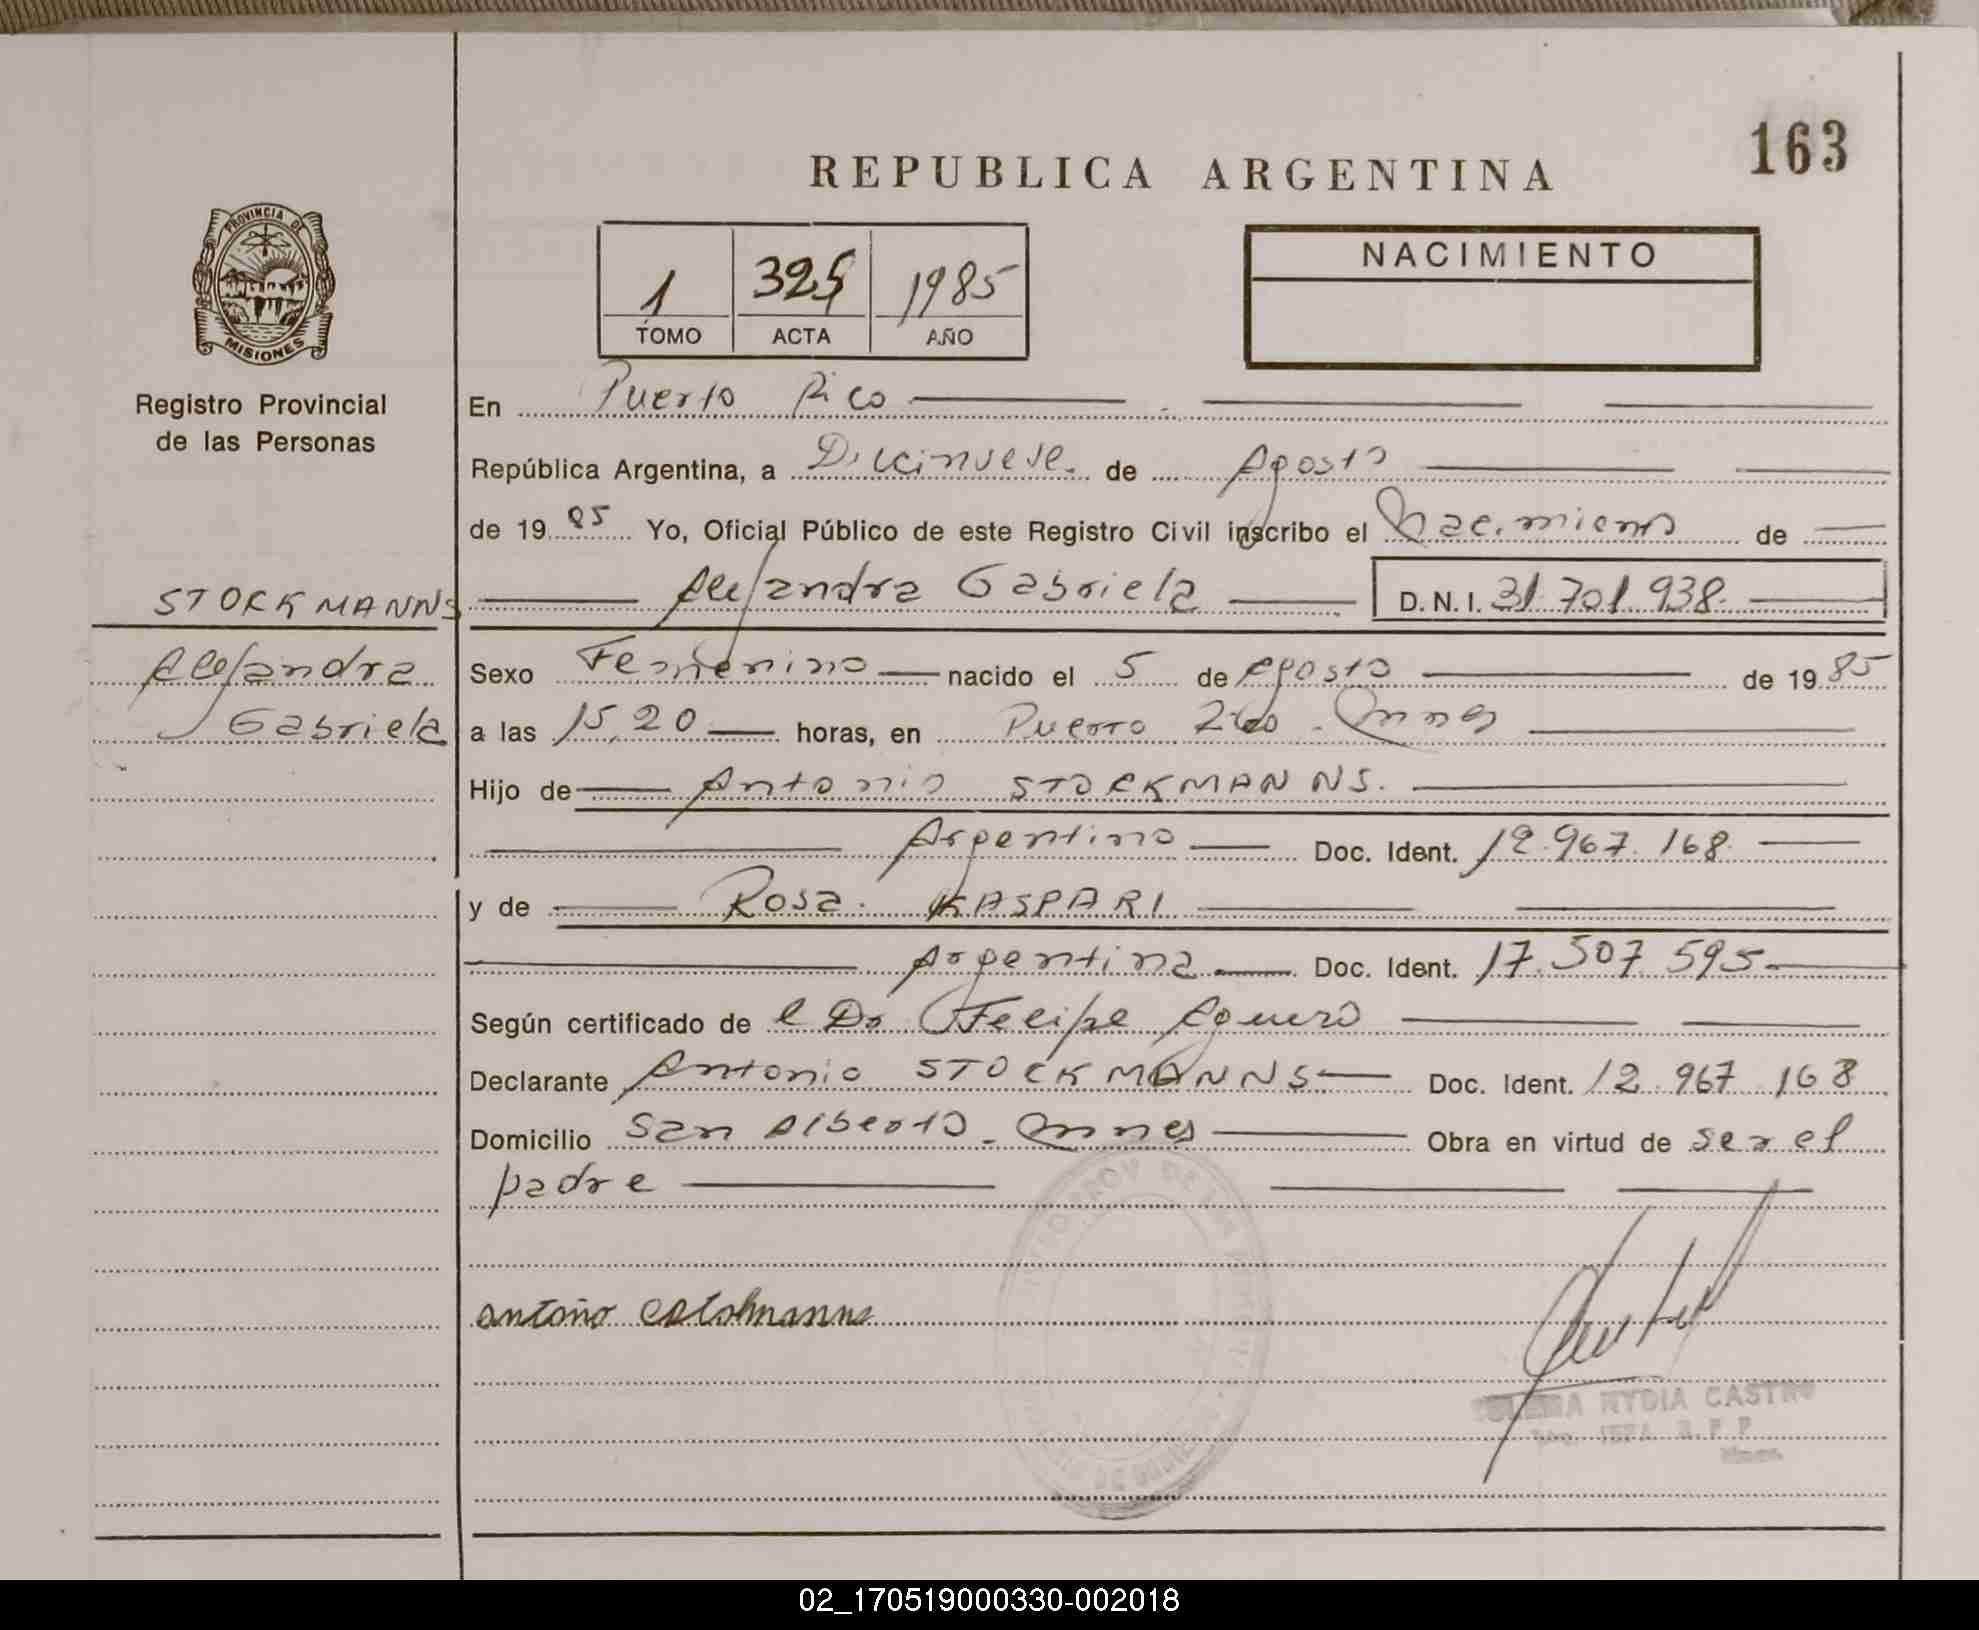 163
REPUBLICA ARGENTINA
PROVINCIA DE
MISIONES
Registro Provincial
de las Personas
1 325 1985
TOMO ACTA AÑO
NACIMIENTO
En Puerto Rico
República Argentina, a Diecinueve de Agosto
de 19 85 Yo, Oficial Público de este Registro Civil inscribo el Nacimiento de
STOCKMANNS
Alejandra Gabriela D.N.I. 31.701.938
Alejandra
Gabriela
Sexo Femenino nacido el 5 de agosto de 19 85
a las 15,20 horas, en Puerto Rico - Mnes
Hijo de Antonio STOCKMANNS.
Argentino Doc. Ident. 12.967.168
y de Rosa KASPARI
Argentina Doc. Ident. 17.507.595
Según certificado de el Dr Felipe Aguero
Declarante Antonio STOCKMANNS Doc. Ident. 12.967.168
Domicilio San Alberto - Mnes Obra en virtud de ser el
padre
antoño
NYDIA CASTRO
02_170519000330-002018